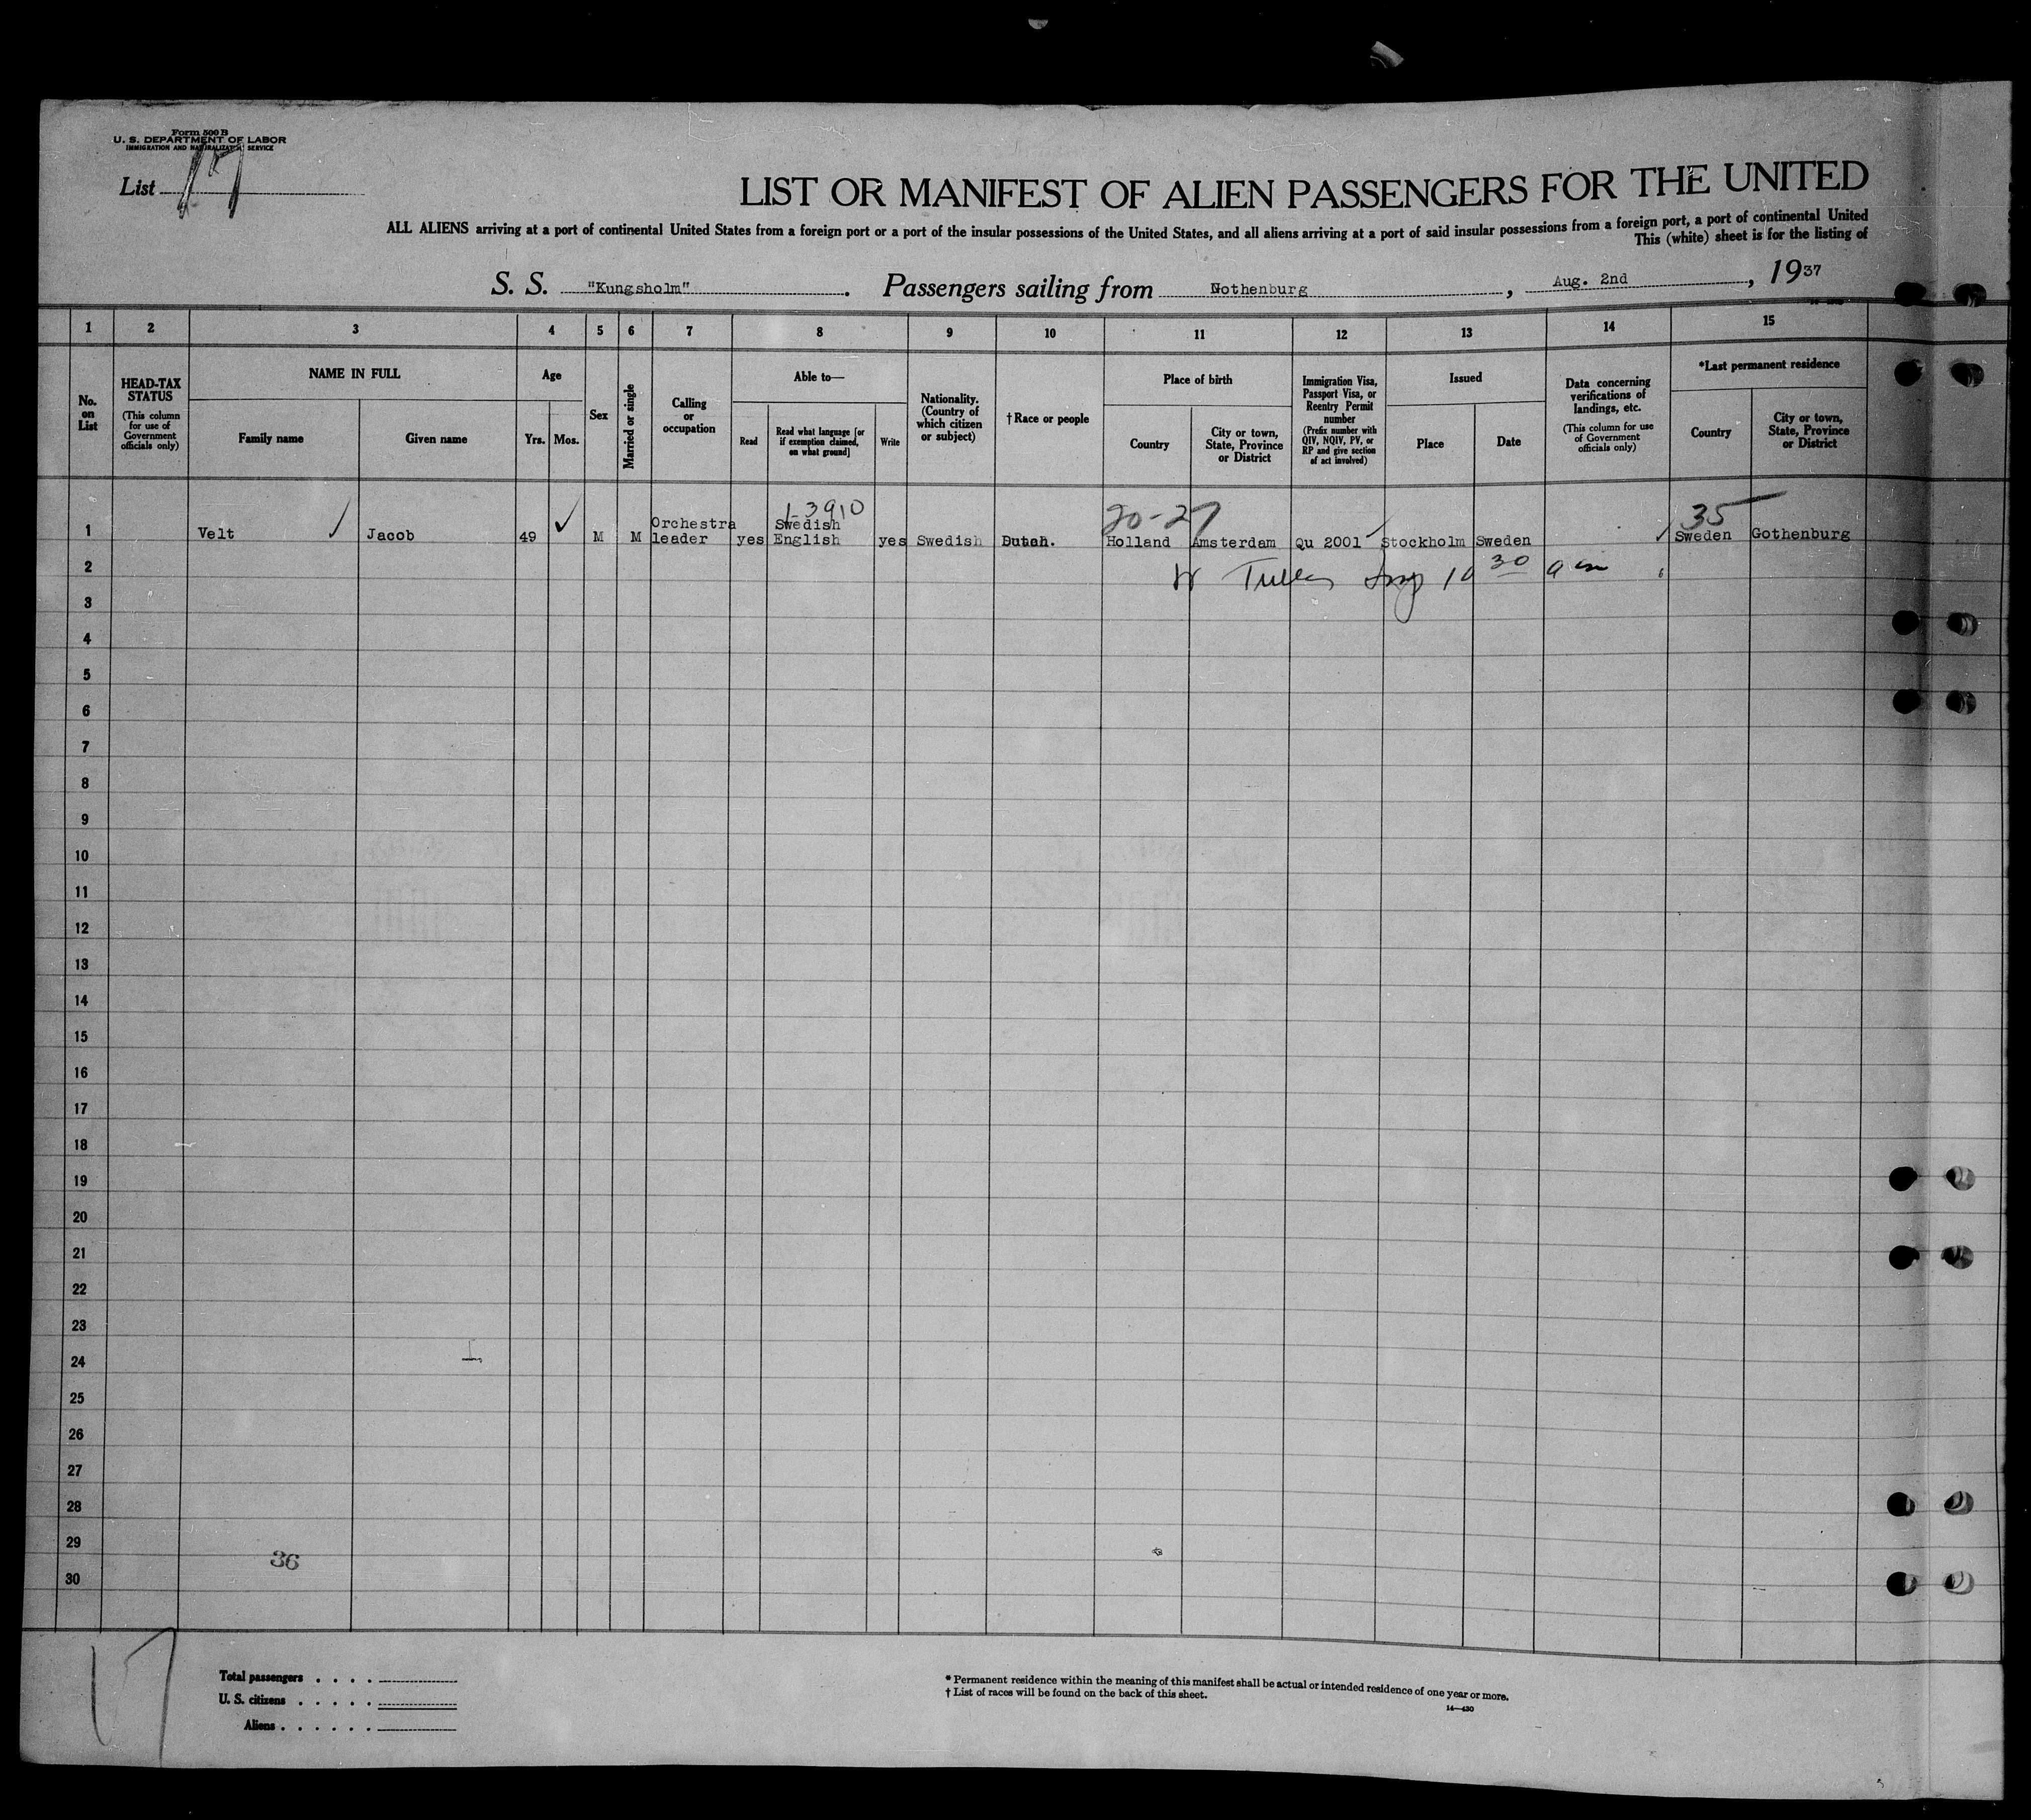 Form 500 B
U. S. DEPARTMENT OF LABOR
IMMIGRATION AND NATURALIZATION SERVICE
List 17
LIST OR MANIFEST OF ALIEN PASSENGERS FOR THE UNITED
ALL ALIENS arriving at a port of continental United States from a foreign port or a port of the insular possessions of the United States, and all aliens arriving at a port of said insular possessions from a foreign port, a port of continental United
This (white) sheet is for the listing of
S. S. "Kungsholm". Passengers sailing from Nothenburg, Aug. 2nd, 1937
1 2 3 4 5 6 7 8 9 10 11 12 13 14 15
No. on List
HEAD-TAX STATUS
(This column for use of Government officials only)
NAME IN FULL
Family name
Given name
Age
Yrs. Mos.
Sex
Married or single
Calling or occupation
Able to—
Read
Read what language [or if exemption claimed, on what ground]
Write
Nationality. (Country of which citizen or subject)
† Race or people
Place of birth
Country
City or town, State, Province or District
Immigration Visa, Passport Visa, or Reentry Permit number
(Prefix number with QIV, NQIV, PV, or RP and give section of act involved)
Issued
Place
Date
Data concerning verifications of landings, etc.
(This column for use of Government officials only)
*Last permanent residence
Country
City or town, State, Province or District
1-3910 20-27 35
1 Velt Jacob 49 M M Orchestra leader yes Swedish English yes Swedish Dutch. Holland Amsterdam Qu 2001 Stockholm Sweden Sweden Gothenburg
2
3
4
5
6
7
8
9
10
11
12
13
14
15
16
17
18
19
20
21
22
23
24
25
26
27
28
29
36
30
17
Total passengers . . . .
U. S. citizens . . . . .
Aliens . . . . . .
* Permanent residence within the meaning of this manifest shall be actual or intended residence of one year or more.
† List of races will be found on the back of this sheet.
14—430